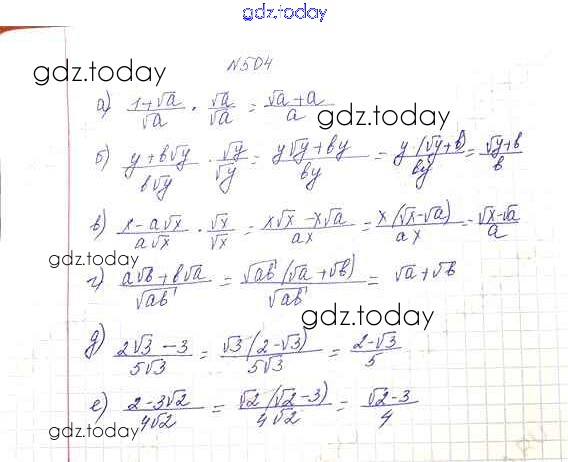 gdz.today
N504
gdz.today
а) (1+√a)/√a · √a/√a = (√a+a)/a
gdz.today
б) (y+b√y)/(b√y) · √y/√y = (y√y+by)/(by) = (y·(√y+b))/(by) = (√y+b)/b
в) (x-a√x)/(a√x) · √x/√x = (x√x-x√a)/(ax) = (x(√x-√a))/(ax) = (√x-√a)/a
gdz.today
г) (a√b+b√a)/√ab = (√ab(√a+√b))/√ab = √a+√b
gdz.today
д) (2√3-3)/(5√3) = (√3(2-√3))/(5√3) = (2-√3)/5
е) (2-3√2)/(4√2) = (√2(√2-3))/(4√2) = (√2-3)/4
gdz.today